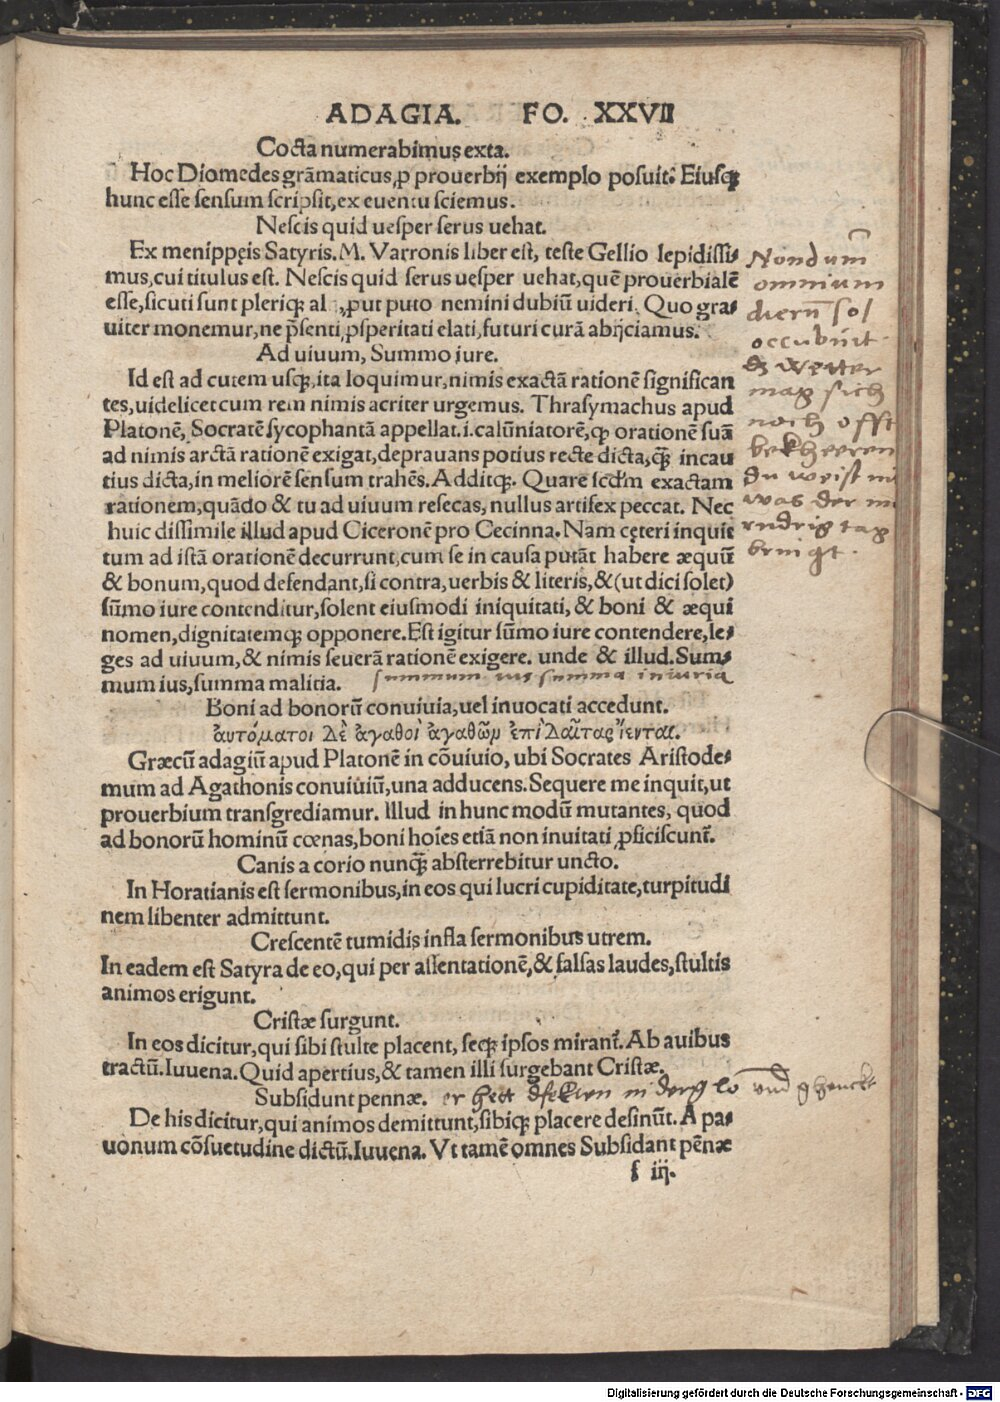 ADAGIA. FO. XXVII
Cocta numerabimus exta.
Hoc Diomedes grãmaticus, ꝓ prouerbij exemplo posuit: Eiusqꝫ
hunc esse sensum scripsit, ex euentu sciemus.
Nescis quid uesper serus uehat.
Ex menippęis Satyris. M. Varronis liber est, teste Gellio lepidissi⸗
mus, cui titulus est. Nescis quid serus uesper uehat, quẽ prouerbialẽ
esse, sicuti sunt pleriqꝫ al , put puto nemini dubiũ uideri. Quo gra⸗
uiter monemur, ne p̃senti, ꝓsperitati elati, futuri curã abijciamus.
Ad uiuum, Summo iure.
Id est ad cutem usqꝫ, ita loquimur, nimis exactã rationẽ significan
tes, uidelicet cum rem nimis acriter urgemus. Thrasymachus apud
Platonẽ, Socratẽ sycophantã appellat. i. calũniatorẽ, qꝫ orationẽ suã
ad nimis arctã rationẽ exigat, deprauans potius recte dicta, qꝫ̃ incau
tius dicta, in meliorẽ sensum trahẽs. Additqꝫ. Quare scd̃m exactam
rationem, quãdo & tu ad uiuum resecas, nullus artifex peccat. Nec
huic dissimile illud apud Ciceronẽ pro Cecinna. Nam cęteri inquit
tum ad istã orationẽ decurrunt, cum se in causa putãt habere æquũ
& bonum, quod defendant, si contra, uerbis & literis, & (ut dici solet)
sũmo iure contenditur, solent eiusmodi iniquitati, & boni & æqui
nomen, dignitatemqꝫ opponere. Est igitur sũmo iure contendere, le⸗
ges ad uiuum, & nimis seuerã rationẽ exigere. unde & illud. Sum⸗
mum ius, summa malitia. summum ius summa iniuria
Boni ad bonorũ conuiuia, uel inuocati accedunt.
ἀυτόματοι Δὲ ἀγαθοὶ ἀγαθῶμ ἐπὶ Δαῖτας ἵενται.
Græcũ adagiũ apud Platonẽ in cõuiuio, ubi Socrates Aristode⸗
mum ad Agathonis conuiuiũ, una adducens. Sequere me inquit, ut
prouerbium transgrediamur. Illud in hunc modũ mutantes, quod
ad bonorũ hominũ cœnas, boni hoĩes etiã non inuitati ꝓficiscunt̃.
Canis a corio nunqꝫ̃ absterrebitur uncto.
In Horatianis est sermonibus, in eos qui lucri cupiditate, turpitudi
nem libenter admittunt.
Crescentẽ tumidis infla sermonibus utrem.
In eadem est Satyra de eo, qui per assentationẽ, & falsas laudes, stultis
animos erigunt.
Cristæ surgunt.
In eos dicitur, qui sibi stulte placent, seqꝫ ipsos mirant̃. Ab auibus
tractũ. Iuuena. Quid apertius, & tamen illi surgebant Cristæ.
Subsidunt pennæ. er hett
De his dicitur, qui animos demittunt, sibiqꝫ placere desinũt. A pa⸗
uonum cõsuetudine dictũ. Iuuena. Vt tamẽ omnes Subsidant pẽnæ
f iij.
Nondum
omnium
diern̄ sol
occubuit
wetter
mag sich
noch offt
bekheeren
du weist ni
was der
tag
bringt.
Digitalisierung gefördert durch die Deutsche Forschungsgemeinschaft - DFG